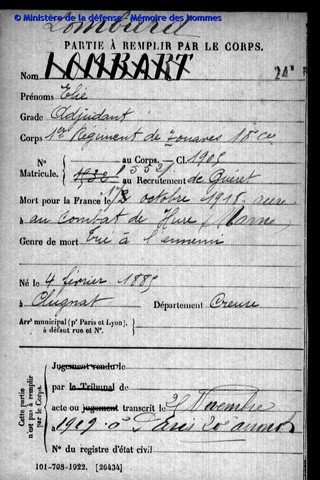 © Ministère de la défense - Mémoire des hommes
PARTIE À REMPLIR PAR LE CORPS.
Nom LOMBART
Prénoms Elie
Grade Adjudant
Corps 1er Régiment de Zouaves 18 Cie
N° au Corps. — Cl. 1905
Matricule. au Recrutement de Guéret
Mort pour la France le octobre 1915
à au Combat de Marne
Genre de mort Tué à l'ennemi
Né le 4 février 1885
à Clugnat Département Creuse
Arrt municipal (pr Paris et Lyon),
à défaut rue et N°.
Cette partie n'est pas à remplir par le Corps.
Jugement rendu le
par le Tribunal de
acte ou jugement transcrit le Novembre
à Paris 20e arrondt
N° du registre d'état civil
101-708-1922. [26434]